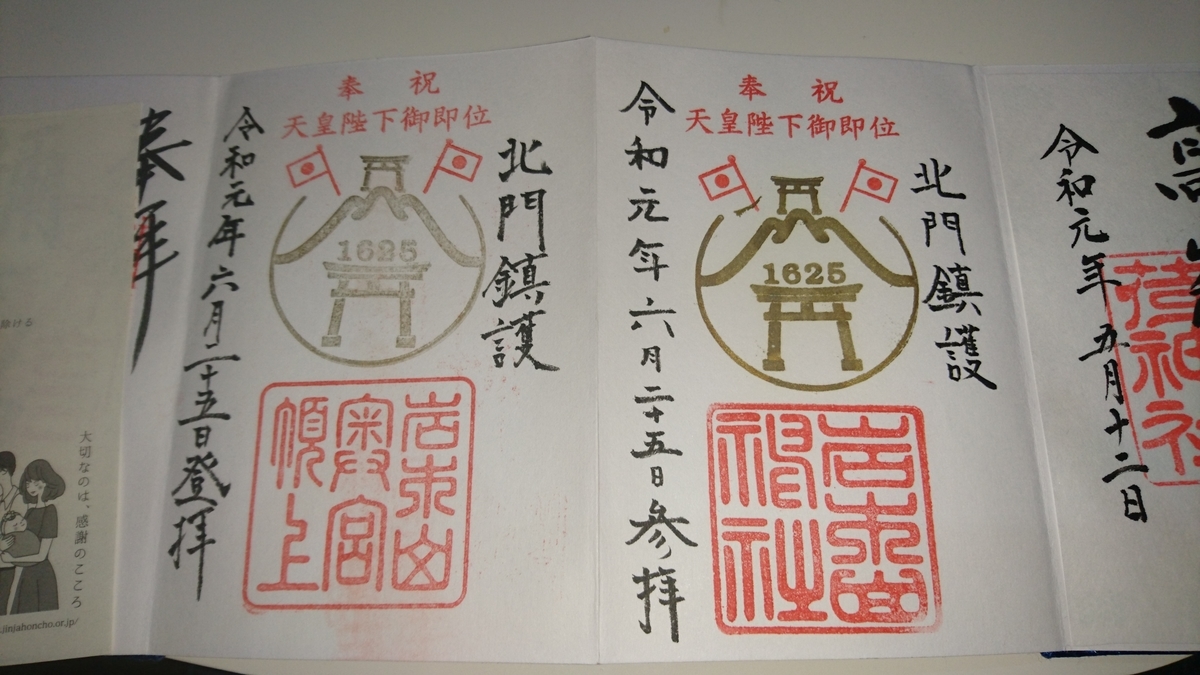 高
令和元年五月十二日
荷神社
奉祝
天皇陛下御即位
北門鎮護
1625
岩木山
神社
令和元年六月二十五日参拝
奉祝
天皇陛下御即位
北門鎮護
1625
岩木山
奥宮
頂上
令和元年六月二十五日登拝
奉拝
除ける
大切なのは、感謝のこころ
.jinjahoncho.or.jp/